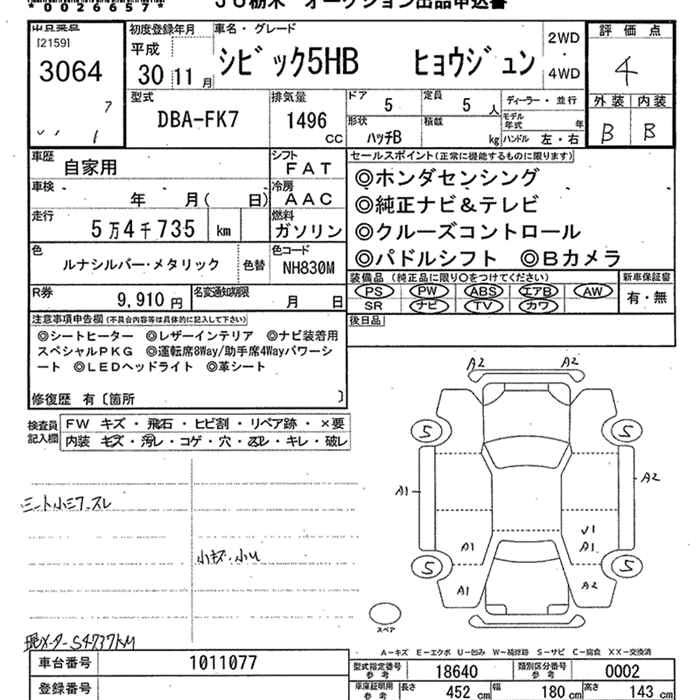 *0026657*
JU栃木 オークション出品申込書
出品番号
[2159]
3064
7
1
初度登録年月
平成
30 11月
車名・グレード
シビック5HB ヒョウジュン
2WD
・
4WD
評価点
4
外装 内装
B B
型式
DBA-FK7
排気量
1496
cc
ドア 5
定員 5 人
形状 ハッチB
積載 kg
ディーラー・並行
モデル年式 年
ハンドル 左・右
車歴 自家用
シフト FAT
車検 年 月( 日)
冷房 AAC
走行 5万4千735 km
燃料 ガソリン
色 ルナシルバー・メタリック
色替
色コード NH830M
R券 9,910 円
名変通知期限 月 日
セールスポイント(正常に機能するものに限ります)
◎ホンダセンシング
◎純正ナビ&テレビ
◎クルーズコントロール
◎パドルシフト ◎Bカメラ
装備品(純正品に限り○をつけてください)
PS PW ABS エアB AW
SR ナビ TV カワ
新車保証書
有・無
後日品
注意事項申告欄(不具合内容等は具体的に記入して下さい)
◎シートヒーター ◎レザーインテリア ◎ナビ装着用
スペシャルPKG ◎運転席8Way/助手席4Wayパワーシ
ート ◎LEDヘッドライト ◎革シート
修復歴 有〔箇所 〕
検査員
記入欄
FW キズ・飛石・ヒビ割・リペア跡・×要
内装 キズ・汚レ・コゲ・穴・スレ・キレ・破レ
シート小シワ、スレ
小キズ・小U
現メーター54737KM
A2 A2
5 5
A1 A2
V1
A1 A1
5 5
A1 A2
スペア
A-キズ E-エクボ U-凹み W-補修跡 S-サビ C-腐食 XX-交換済
車台番号 1011077
登録番号
型式指定番号
参考
18640
類別区分番号
参考
0002
車庫証明用
参考
長さ 452 cm 幅 180 cm 高さ 143 cm